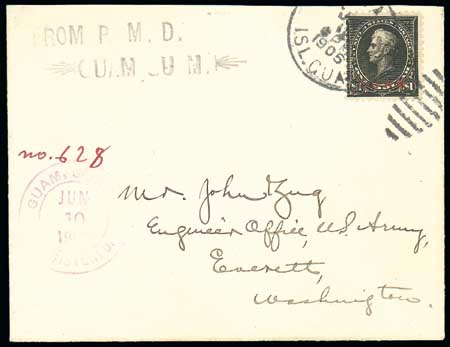 FROM P. M. D.
GUAM GU M.I.
1905
ISL. GUAM
$1
no. 628
GUAM,
JUN
10
REGISTERED
Mr. John Zug
Engineer Office, U.S. Army,
Everett,
Washington.